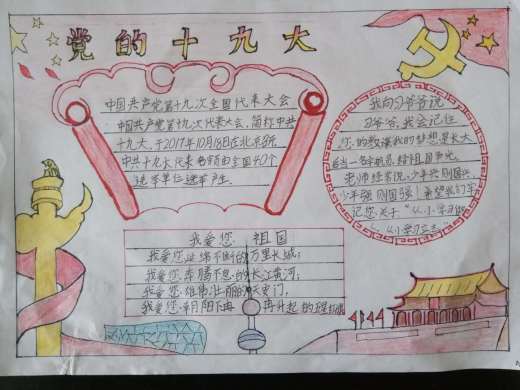 党的十九大
中国共产党第十九次全国代表大会
中国共产党第十九次代表大会,简称中共
十九大,于2017年10月18日在北京召
中共十九大代表 由全国40个
选举单位选举产生.
我向习爷爷说
习爷爷,我会记住
您的教诲我的梦想是长大
当一名 给祖国争光
老师经常说:少年兴则国兴,
少年强则国强!希望我们牢
记您关于"从小学习做
从小学习
我爱您 祖国
我爱您连绵不断的万里长城;
我爱您奔腾不息的长江黄河;
我爱您雄伟壮丽的天安门,
我爱您 冉冉升起的